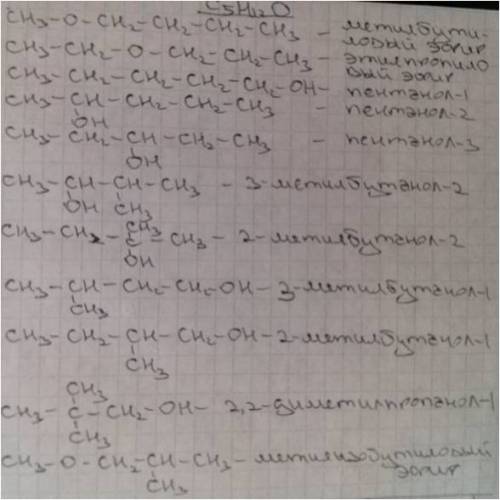 C5H12O
CH3-O-CH2-CH2-CH2-CH3 - метилбути-
ловый эфир
CH3-CH2-O-CH2-CH2-CH3 - этилпропило
вый эфир
CH3-CH2-CH2-CH2-CH2-OH - пентанол-1
CH3-CH-CH2-CH2-CH3 - пентанол-2
OH
CH3-CH2-CH-CH2-CH3 - пентанол-3
OH
CH3-CH-CH-CH3 - 3-метилбутанол-2
OH CH3
CH3
CH3-CH2-C-CH3 - 2-метилбутанол-2
OH
CH3-CH-CH2-CH2-OH - 3-метилбутанол-1
CH3
CH3-CH2-CH-CH2-OH-2-метилбутанол-1
CH3
CH3
CH3-C-CH2-OH- 2,2-диметилпропанол-1
CH3
CH3-O-CH2-CH-CH3-метилизобутиловый
эфир
CH3